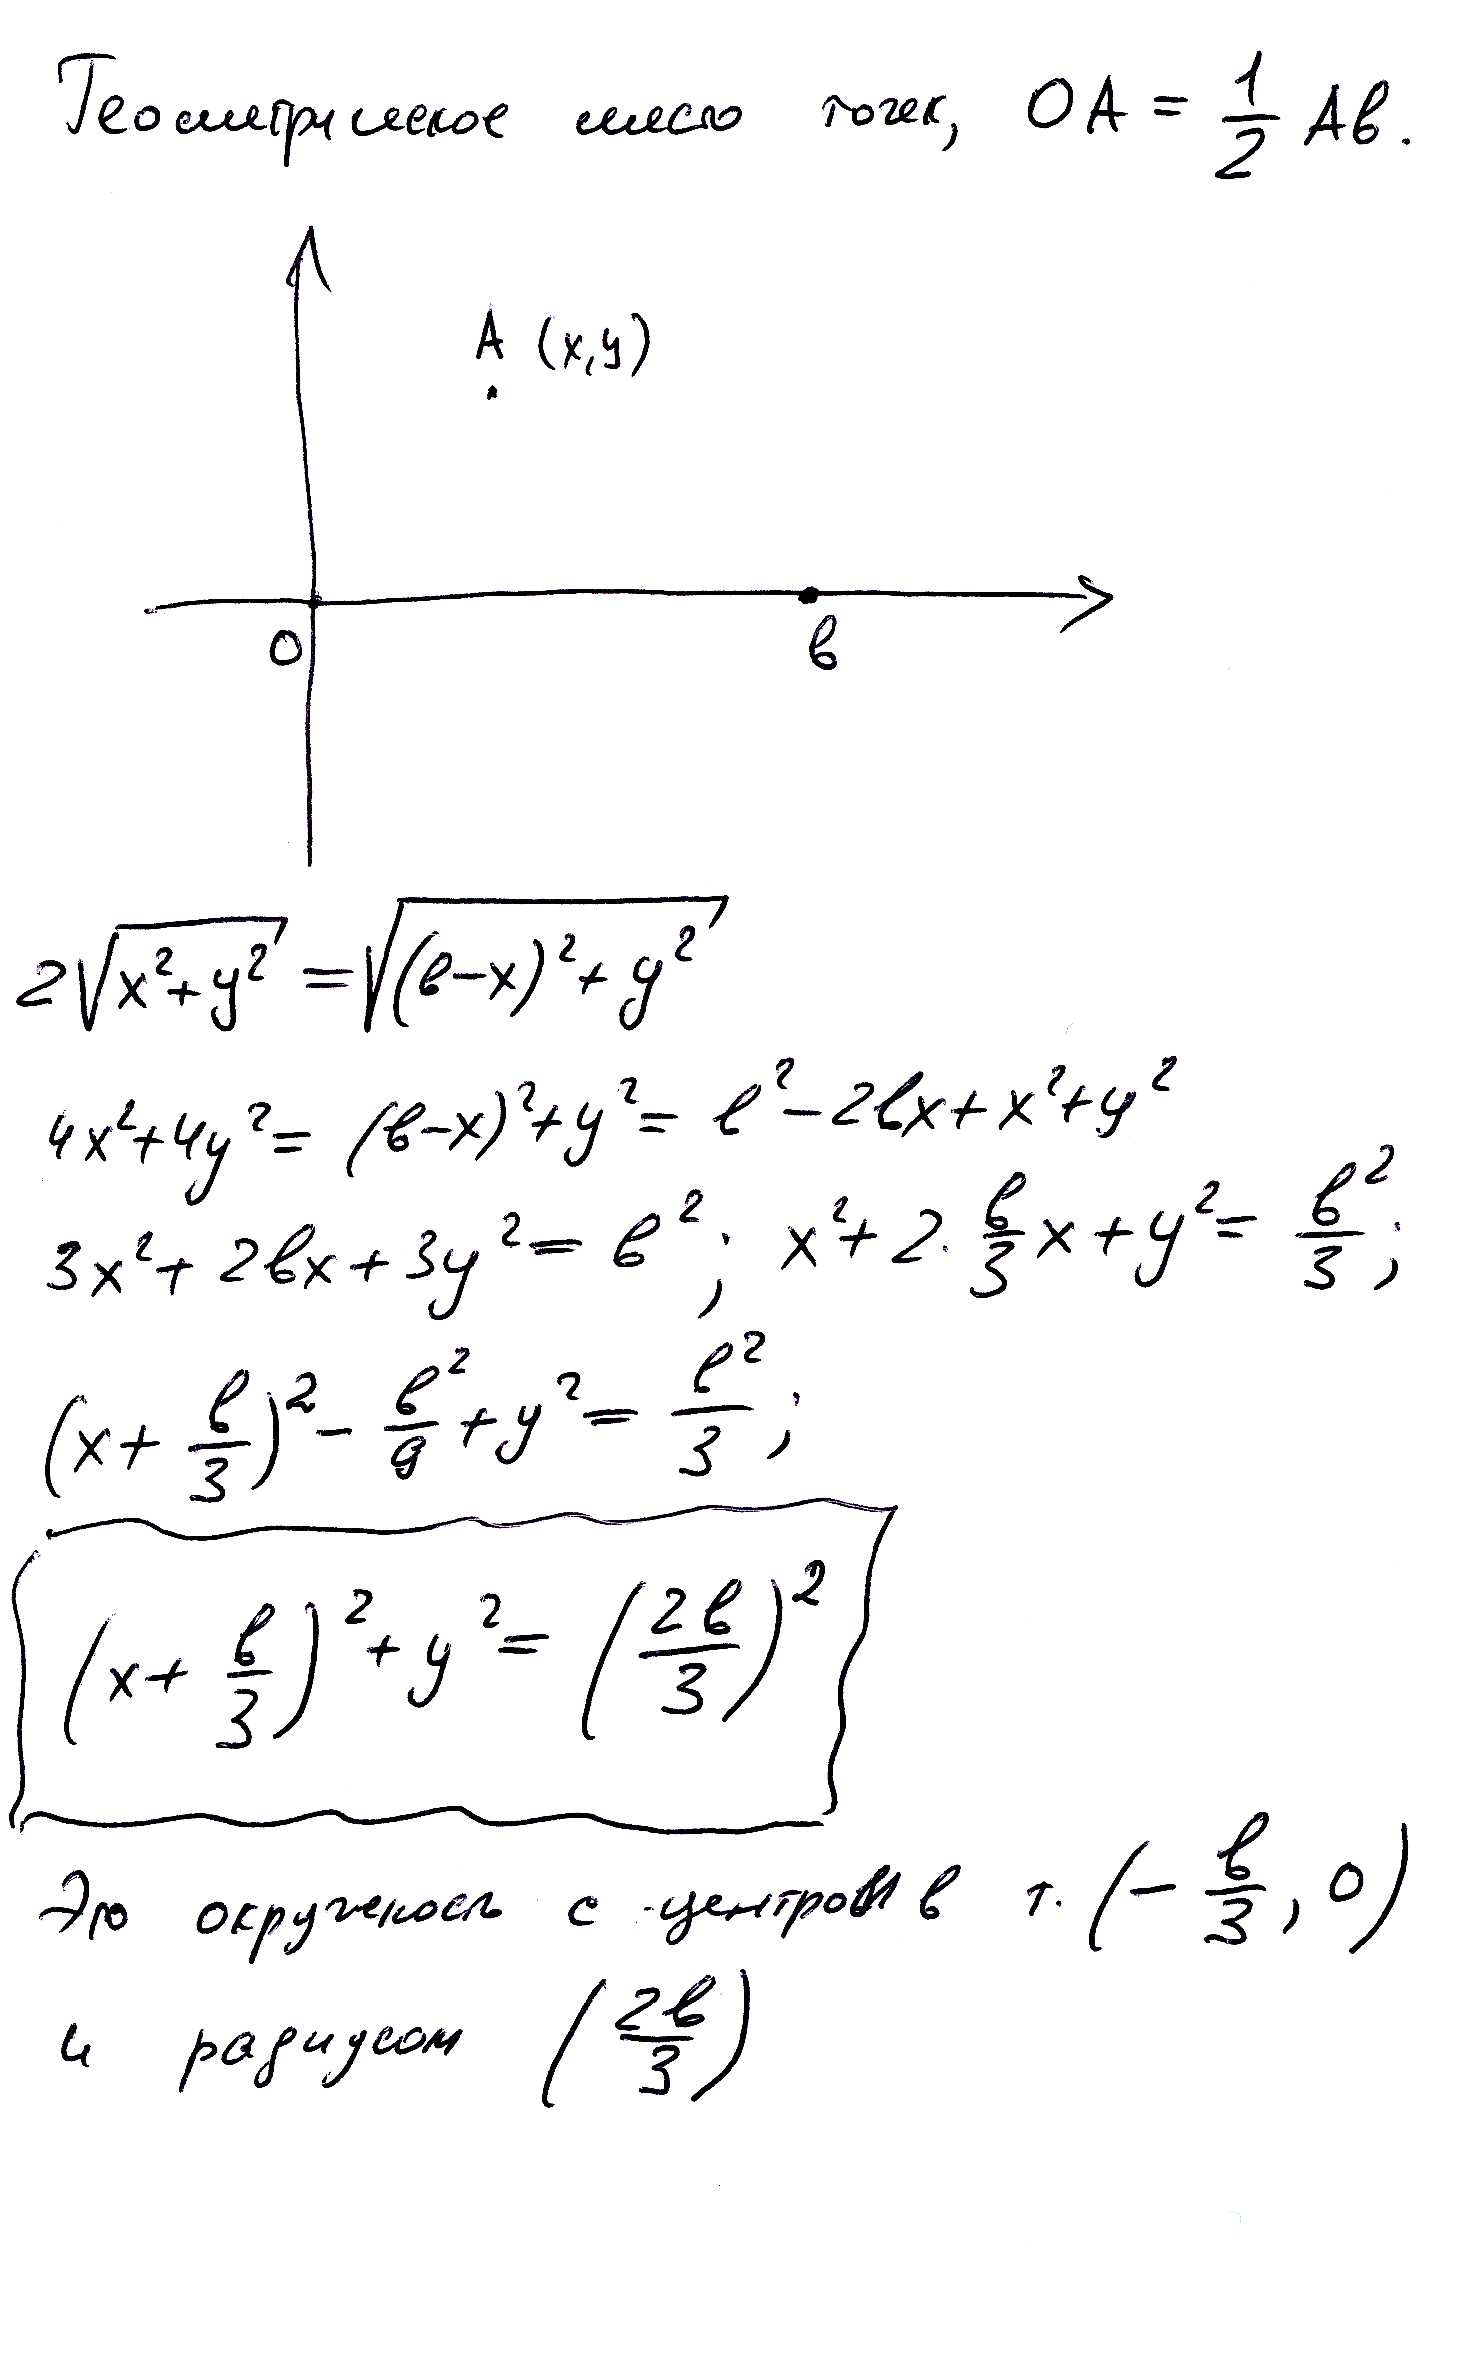 Геометрическое место точек, OA = 1/2 Aв.
A (x,y)
O в
2√(x²+y²) = √((в-x)²+y²)
4x²+4y² = (в-x)²+y² = в²-2вx+x²+y²
3x²+2вx+3y² = в²; x²+2·в/3 x+y² = в²/3;
(x+в/3)²-в²/9+y² = в²/3;
(x+в/3)²+y² = (2в/3)²
Это окружность с центром в т. (-в/3, 0)
и радиусом (2в/3)